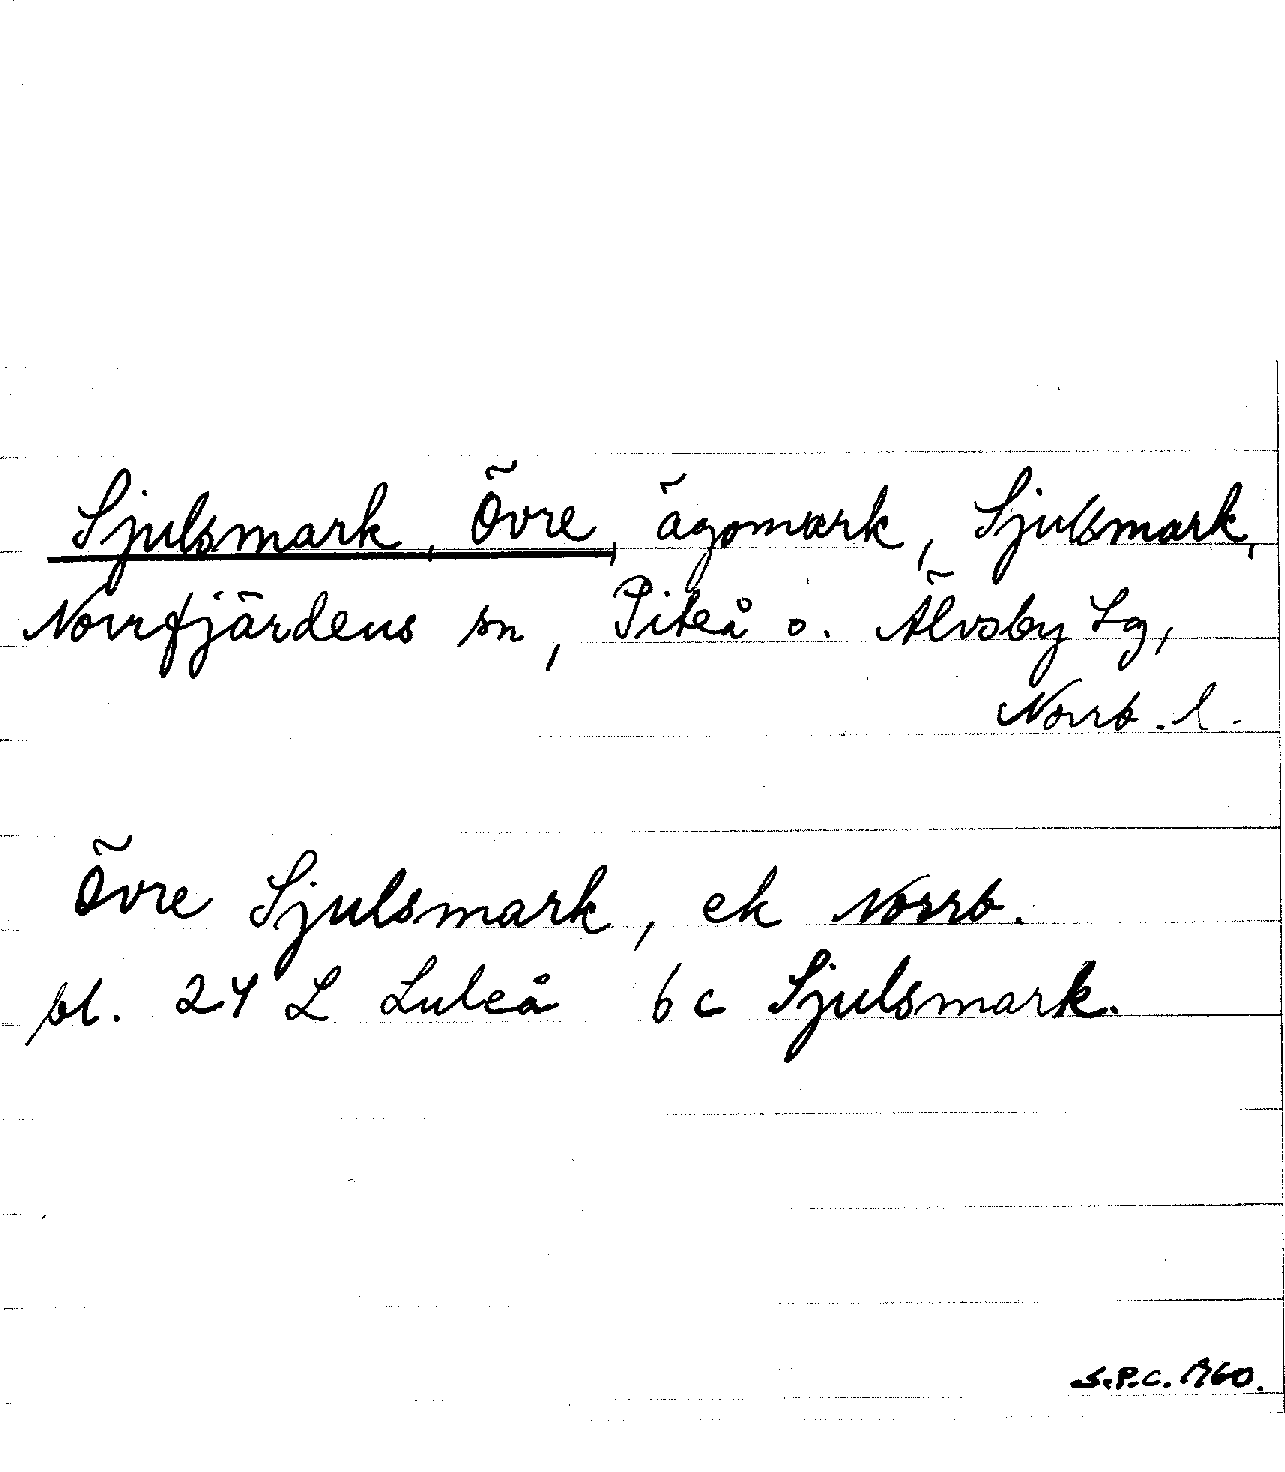 Sjulsmark, Övre, ägomark, Sjulsmark,
Norrfjärdens sn, Piteå o. Älvsby Lg,
Norrb. l.
Övre Sjulsmark, ek Norrb.
bl. 24 L Luleå 6c Sjulsmark.
S.P.C. 1960.